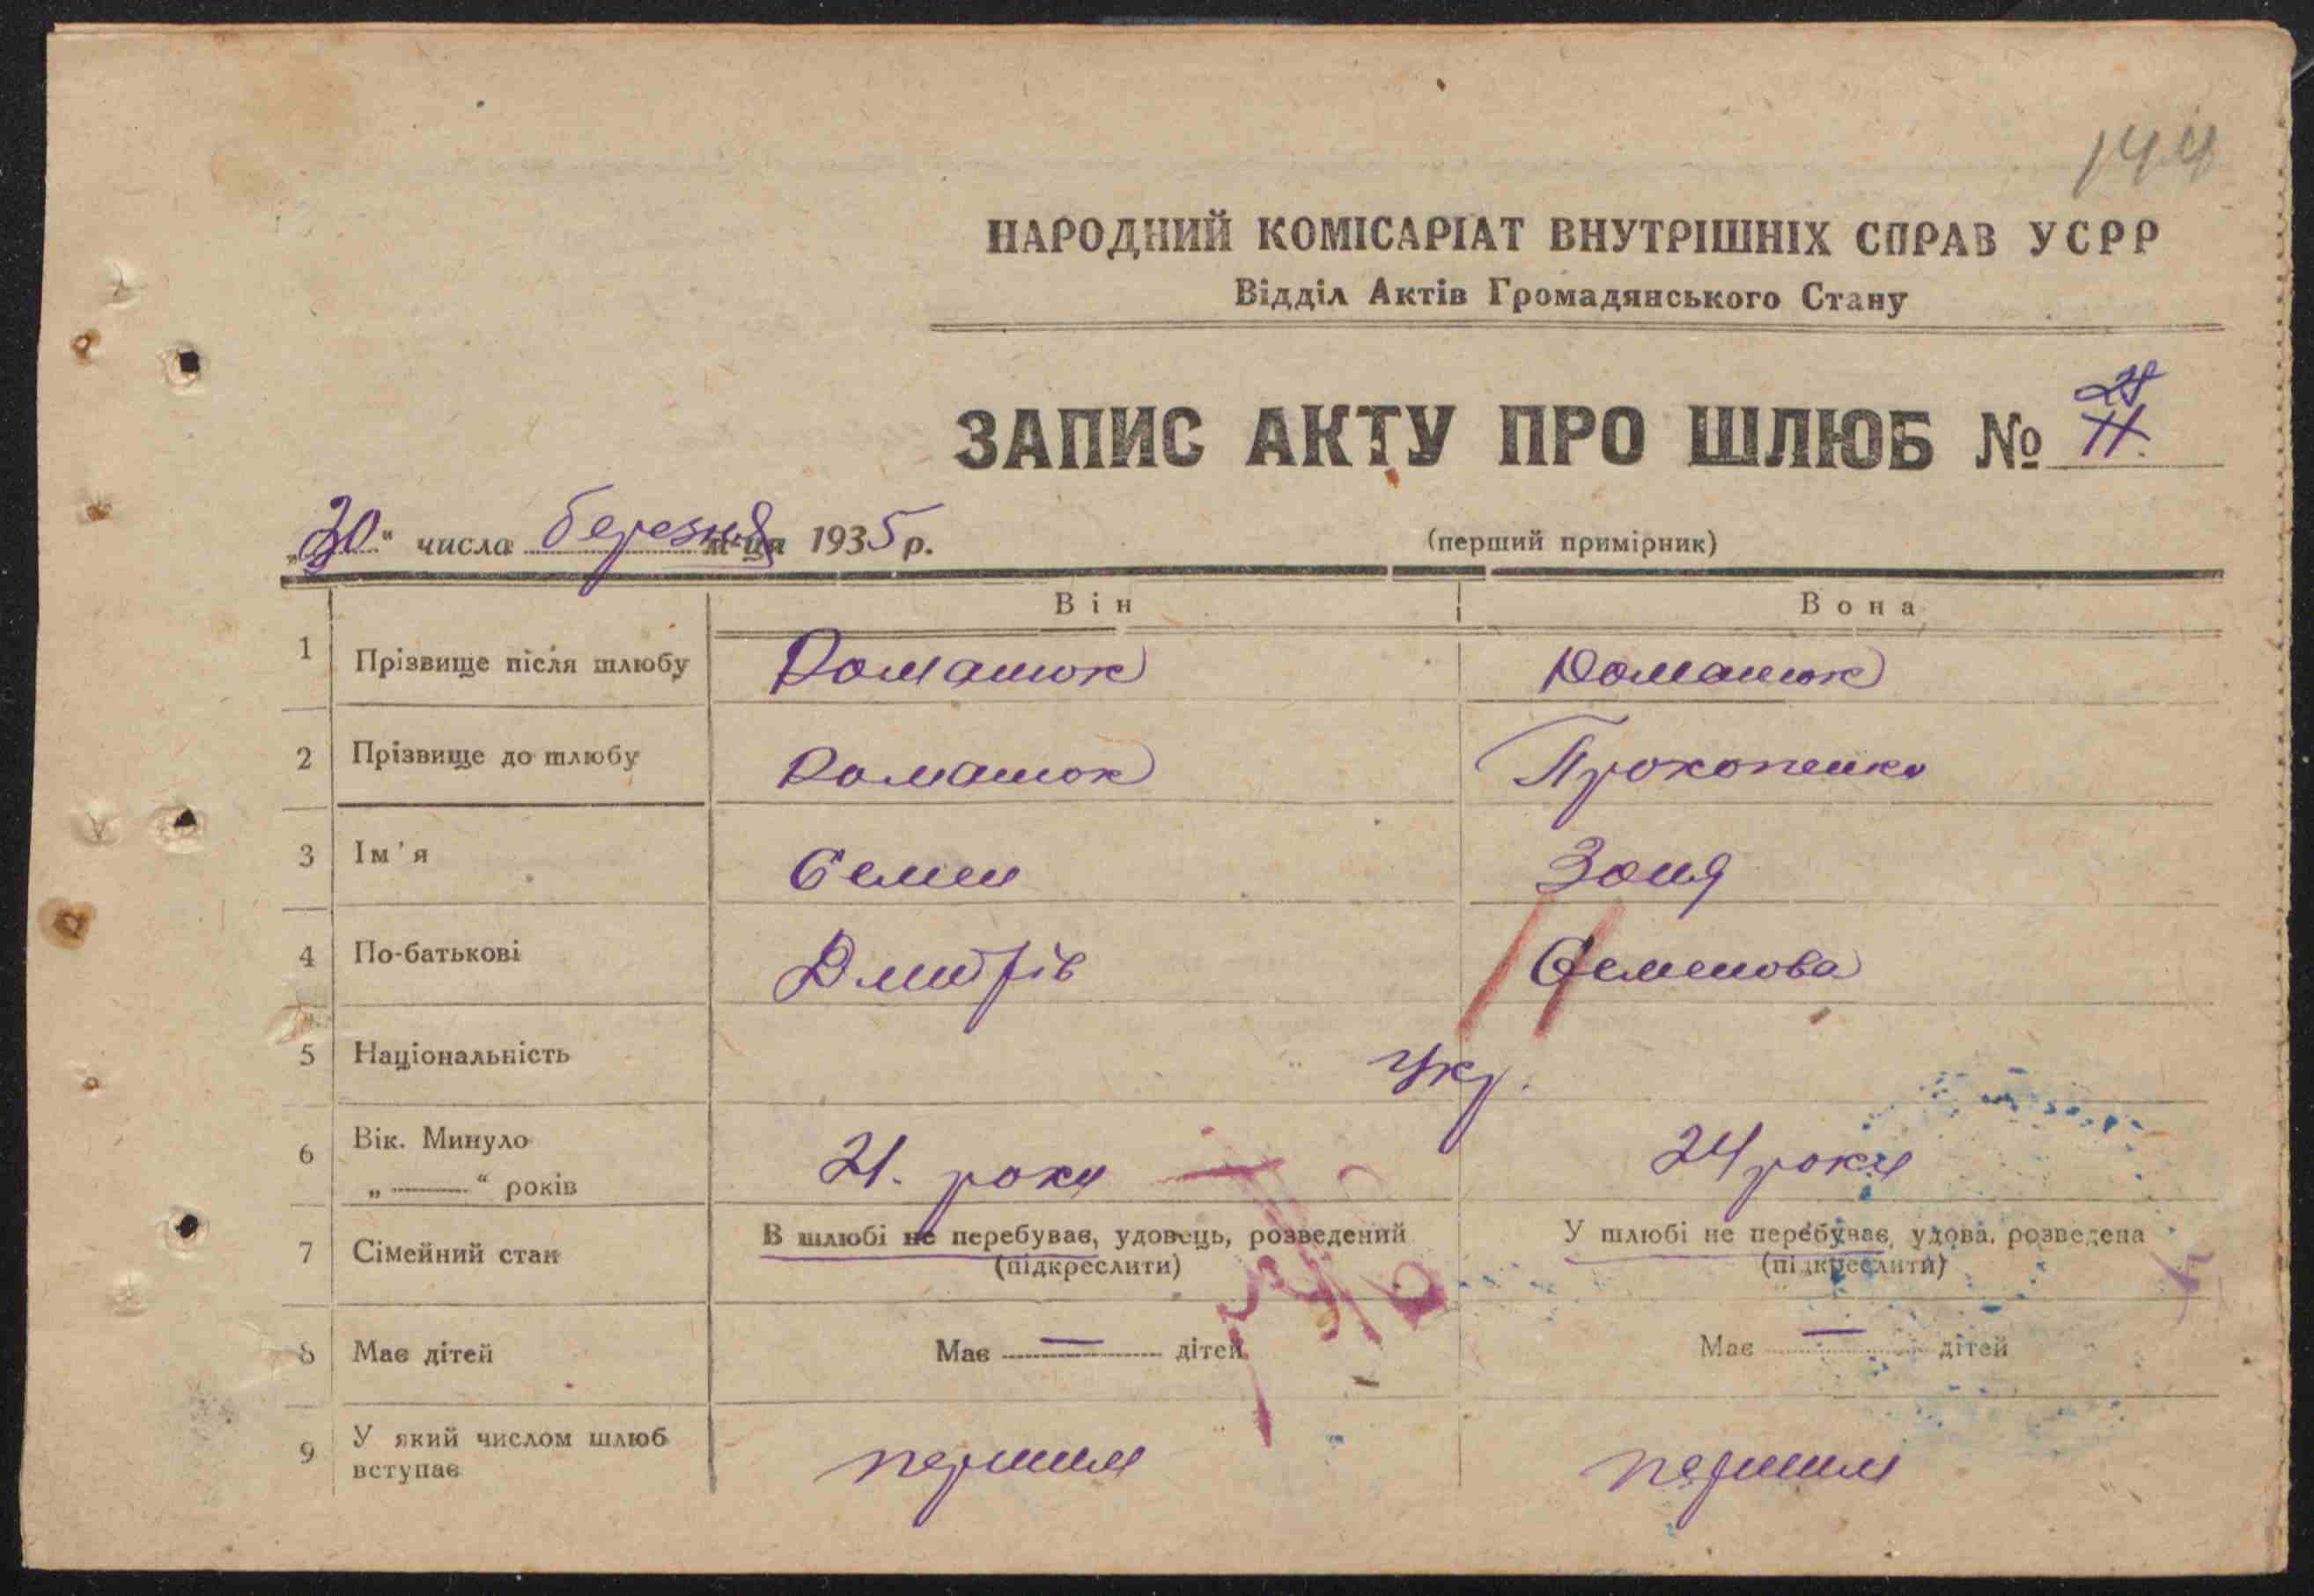 144
НАРОДНИЙ КОМІСАРІАТ ВНУТРІШНІХ СПРАВ УСРР
Відділ Актів Громадянського Стану
ЗАПИС АКТУ ПРО ШЛЮБ №
„30“ числа березня м-ця 1935 р.
(перший примірник)
Він Вона
1 Прізвище після шлюбу Доманюк Доманюк
2 Прізвище до шлюбу Доманюк Прокопенко
3 Ім'я Семен Зоня
4 По-батькові Дмитрів Семенова
5 Національність укр.
6 Вік. Минуло
„ “ років 21. роки 24 роки
7 Сімейний стан В шлюбі не перебуває, удовець, розведений У шлюбі не перебуває, удова, розведена
(підкреслити) (підкреслити)
8 Має дітей Має — дітей Має — дітей
9 У який числом шлюб
вступає першим першим